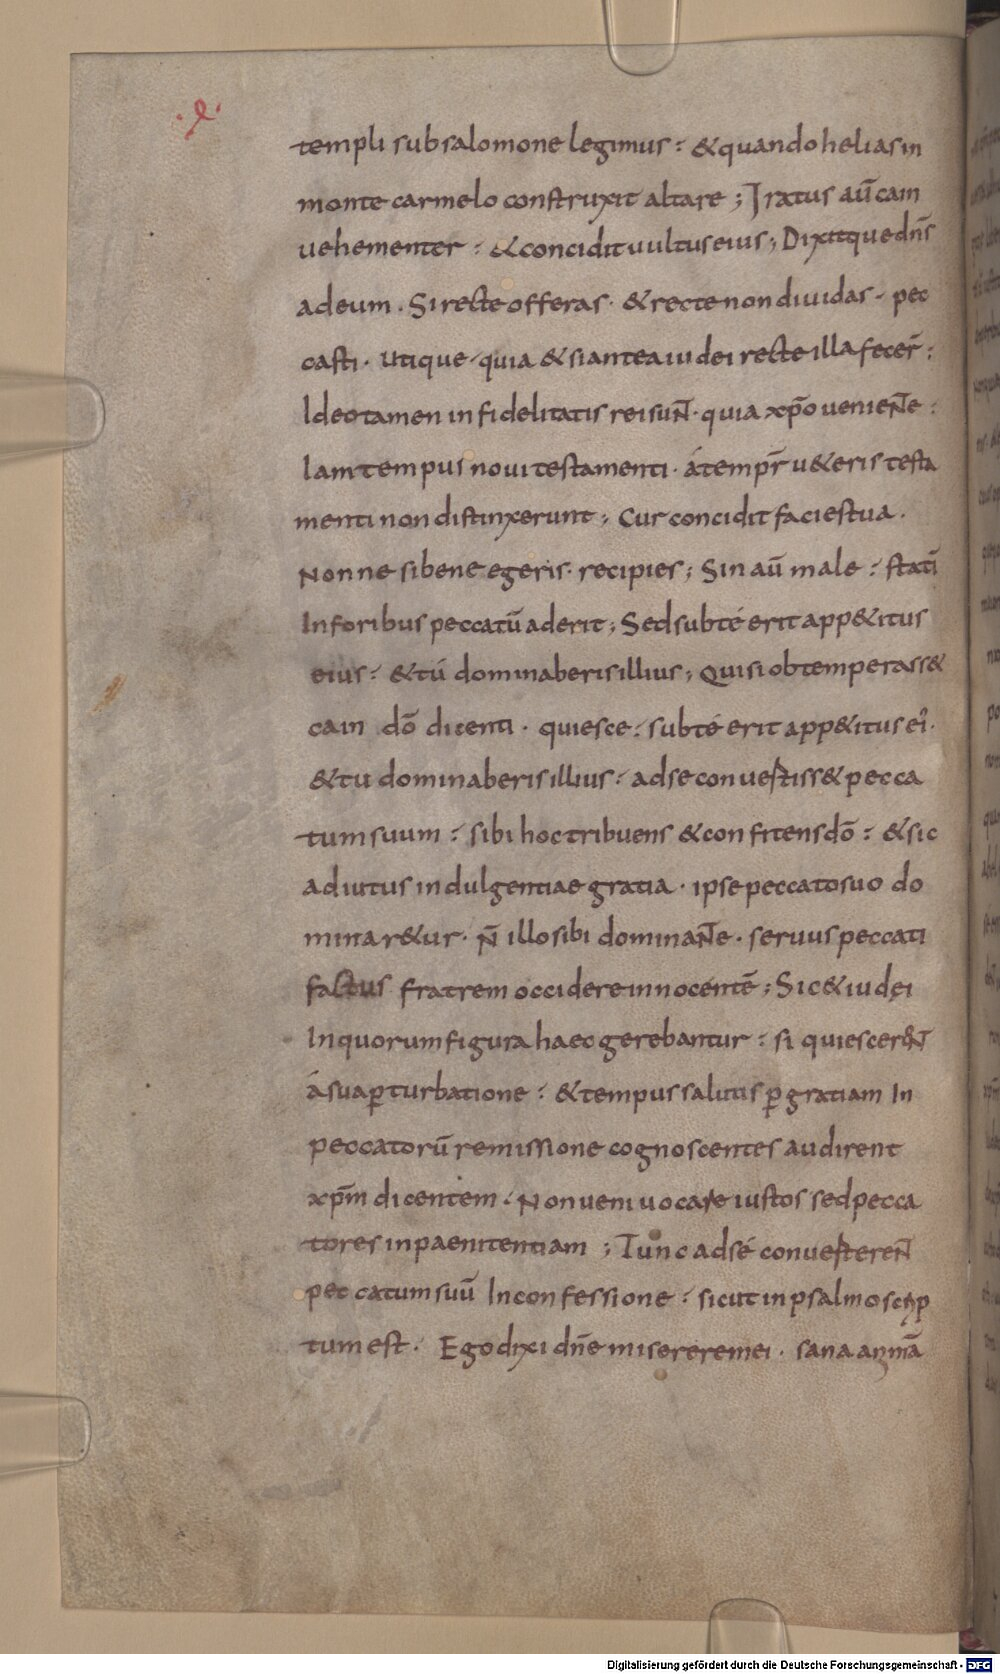 templi sub salomone legimus : & quando helias in
monte carmelo construxit altare ; Iratus aū cain
uehementer : & concidit uultus eius ; Dixitque dn̄s
ad eum . Si recte offeras . & recte non diuidas . pec
casti . Utique quia & si antea iudei recte illa fecer̄ :
Ideo tamen infidelitatis rei sun̄t . quia xp̄o uenien̄te :
Iam tempus noui testamenti . á tempr̄ u&eris testa
menti non distinxerunt ; Cur concidit facies tua .
Nonne si bene egeris . recipies ; Sin aū male : statī
In foribus peccatū aderit ; Sed sub té erit app&itus
eius : & tú dominaberis illius ; Qui si obtemperass&
cain dō dicenti . quiesce : sub té erit app&itus ei' .
& tu dominaberis illius : ad se conuertiss& pecca
tum suum : sibi hoc tribuens & confitens dō : & sic
adiutus indulgentiae gratia . ipse peccato suo do
minar&ur . n̄ illo sibi dominan̄te . seruus peccati
factus fratrem occidere innocentē ; Sic & iudęi
In quorum figura haec gerebantur : si quiescerent
á sua ꝑturbatione : & tempus salutis ꝑ gratiam In
peccatorū remissione cognoscentes audirent
xp̄m dicentem . Non ueni uocare iustos sed pecca
tores in paenitentiam ; Tunc ad sé conuerteren̄t
peccatum suū In confessione : sicut in psalmo scrip
tum est . Ego dixi dn̄e miserere mei . sana animā
Digitalisierung gefördert durch die Deutsche Forschungsgemeinschaft - DFG